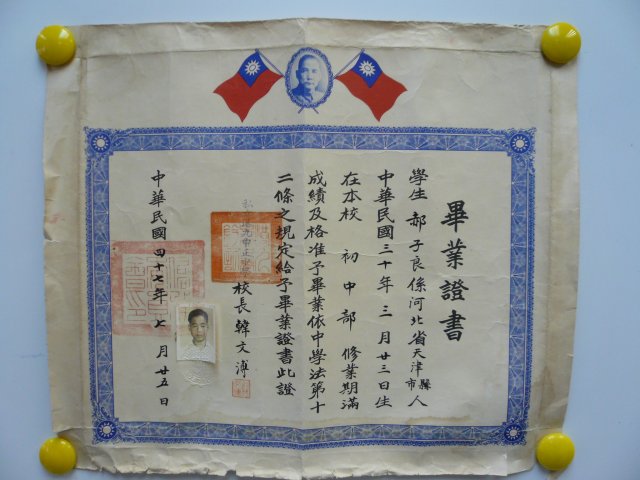 畢業證書
學生 郝子良係河北省天津縣市人
中華民國三十年三月廿三日生
在本校 初中部 修業期滿
成績及格准予畢業依中學法第十
二條之規定給予畢業證書此證
校長韓文溥
中華民國四十七年七月廿五日